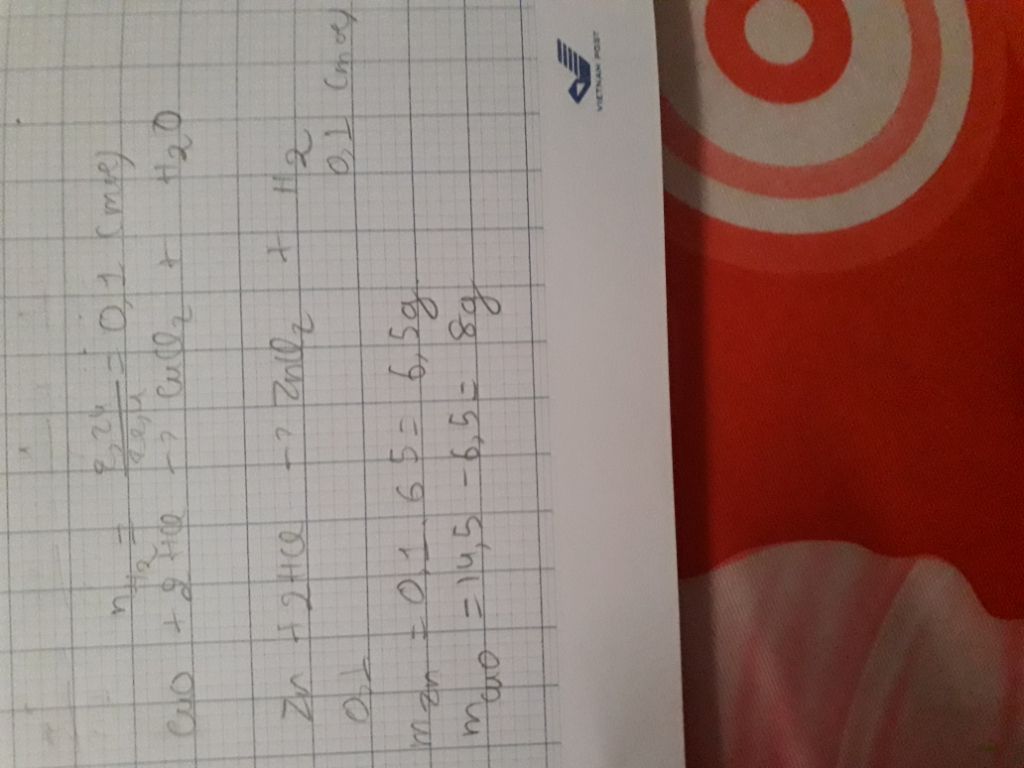 nH2 = 2,24 / 22,4 = 0,1 (mol)
CuO + 2HCl -> CuCl2 + H2O
Zn + 2HCl -> ZnCl2 + H2
0,1 0,1 (mol)
mZn = 0,1 . 65 = 6,5g
mCuO = 14,5 - 6,5 = 8g
VIETNAM POST